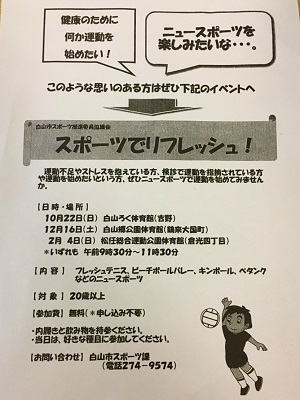 健康のために
何か運動を
始めたい！
ニュースポーツを
楽しみたいな・・・。
このような思いのある方はぜひ下記のイベントへ
白山市スポーツ推進委員協議会
スポーツでリフレッシュ！
運動不足やストレスを抱えている方、検診で運動を指摘されている方
や運動を始めたいという方、ぜひニュースポーツで運動を始めてみませ
んか。
【日時・場所】
10月22日（日） 白山ろく体育館（吉野）
12月16日（土） 白山郷公園体育館（鶴来大国町）
2月 4日（日） 松任総合運動公園体育館（倉光四丁目）
＊いずれも 午前9時30分～11時30分
【内 容】 フレッシュテニス、ビーチボールバレー、キンボール、ペタンク
などのニュースポーツ
【対 象】 20歳以上
【参加費】 無料（＊申し込み不要）
・内履きと飲み物を持参ください。
・当日は、好きな種目に参加してください。
【お問い合わせ】 白山市スポーツ課
（電話274－9574）